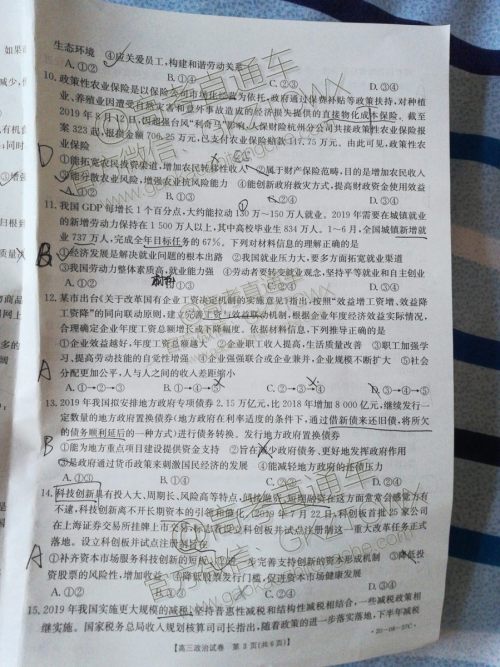 生态环境 ④应关爱员工,构建和谐劳动关系
A.①② B.①④ C.②③ D.③④
10.政策性农业保险是以保险公司市场化经营为依托,政府通过保费补贴等政策扶持,对种植
业、养殖业因遭受自然灾害和意外事故造成的经济损失提供的直接物化成本保险。截至
2019年8月12日,因超强台风“利奇马”影响,人保财险杭州分公司共接政策性农业保险报
案323起,报损金额706.25万元,已支付保险赔款117.75万元。由此可见,政策性农
业保险
D
①能拓宽农民投资渠道,增加农民转移性收入 ②属于财产保险范畴,目的是增加农民收入
③能分散农业风险,增强农业抗风险能力 ④能创新政府救灾方式,提高财政资金使用效益
A.①② B.①③ C.②④ D.③④
11.我国GDP每增长1个百分点,大约能拉动130万~150万人就业。2019年需要在城镇就业
的新增劳动力保持在1500万人以上,其中高校毕业生834万人。1~6月,全国城镇新增就
业737万人,完成全年目标任务的67%。下列对材料信息的理解正确的是
B
①经济发展是解决就业问题的根本出路 ②我国就业压力大,要多方面拓宽就业渠道
③我国劳动力整体素质高,就业能力强 ④劳动者要转变就业观念,坚持平等就业和自主创业
A.①② B.①③ C.②④ D.③④
12.某市出台《关于改革国有企业工资决定机制的实施意见》指出,按照“效益增工资增、效益降
工资降”的同向联动原则,建立完善工资与效益联动机制,根据企业年度经济效益实际情况,
合理确定企业年度工资总额增长或下降幅度。依据材料信息,下列推导正确的是
①企业效益越好,年度工资总额越大 ②企业职工收入提高,生活质量改善 ③职工加强学
习,提高劳动技能的自觉性增强 ④企业强强联合或企业兼并,企业规模不断扩大 ⑤社会
分配更加公平,人与人之间的收入差距缩小
A
A.①→②→③ B.①→④→⑤ C.②→③→④ D.③→④→⑤
13.2019年我国拟安排地方政府专项债券2.15万亿元,比2018年增加8000亿元,继续发行一
定数量的地方政府置换债券(地方政府在利率适度的条件下,通过借新债来还旧债,将所欠
的债务顺利延后的一种方式)进行债务转换。发行地方政府置换债券
B
①能为地方重点项目建设提供资金支持 ②旨在减少政府债务、更好地发挥政府作用
③是政府通过货币政策来刺激国民经济的发展 ④能减轻地方政府的还债压力
A.①③ B.①④ C.②③ D.②④
14.科技创新具有投入大、周期长、风险高等特点,间接融资、短期融资在这方面常常会感觉力有
不逮,科技创新离不开长期资本的引领和催化。2019年7月22日,科创板首批25家公司
在上海证券交易所挂牌上市交易,标志着设立科创板并试点注册制这一重大改革任务正式
落地。设立科创板并试点注册制旨在
A
①补齐资本市场服务科技创新的短板 ②进一步完善支持创新的资本形成机制 ③降低投
资股票的风险性,增加收益 ④降低股票发行门槛,促进资本市场健康发展
A.①② B.①④ C.②③ D.③④
15.2019年我国实施更大规模的减税,坚持普惠性减税和结构性减税相结合,一些减税政策相
继实施。国家税务总局收入规划核算司司长指出,随着政策的进一步落实落地,下半年减税
【高三政治试卷 第3页(共6页)】
·20-08-27C·